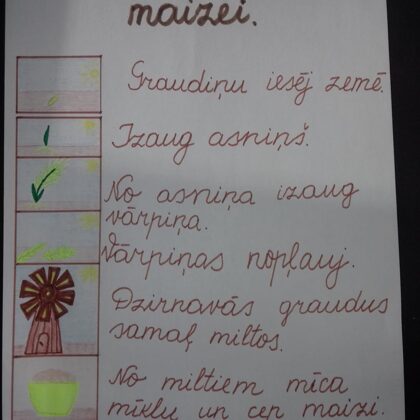 maizei.
Graudiņu iesēj zemē.
Izaug asniņš.
No asniņa izaug
vārpiņa.
Vārpiņas nopļauj.
Dzirnavās graudus
samaļ miltos.
No miltiem mīca
mīklu un cep maizi.